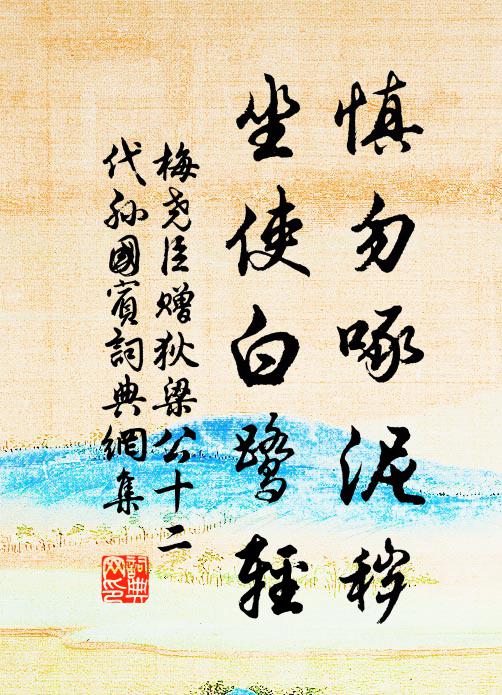 慎勿啄泥秽
坐使白鹭轻
梅尧臣赠狄梁公十二
代孙國賓詞典網集
詞典网印